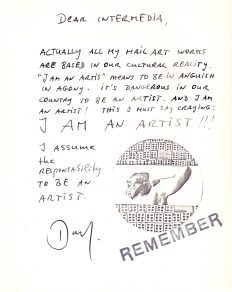 DEAR INTERMEDIA,
ACTUALLY ALL MY MAIL ART WORKS
ARE BASED IN OUR CULTURAL REALITY.
"I AM AN ARTIS" MEANS TO BE IN ANGUISH
IN AGONY. IT'S DANGEROUS IN OUR
COUNTRY TO BE AN ARTIST. AND I AM
AN ARTIST! THIS I MUST SAY CRAYING:
I AM AN ARTIST!!!
I ASSUME
the
RESPONSABILITY
TO BE AN
ARTIST.
REMEMBER